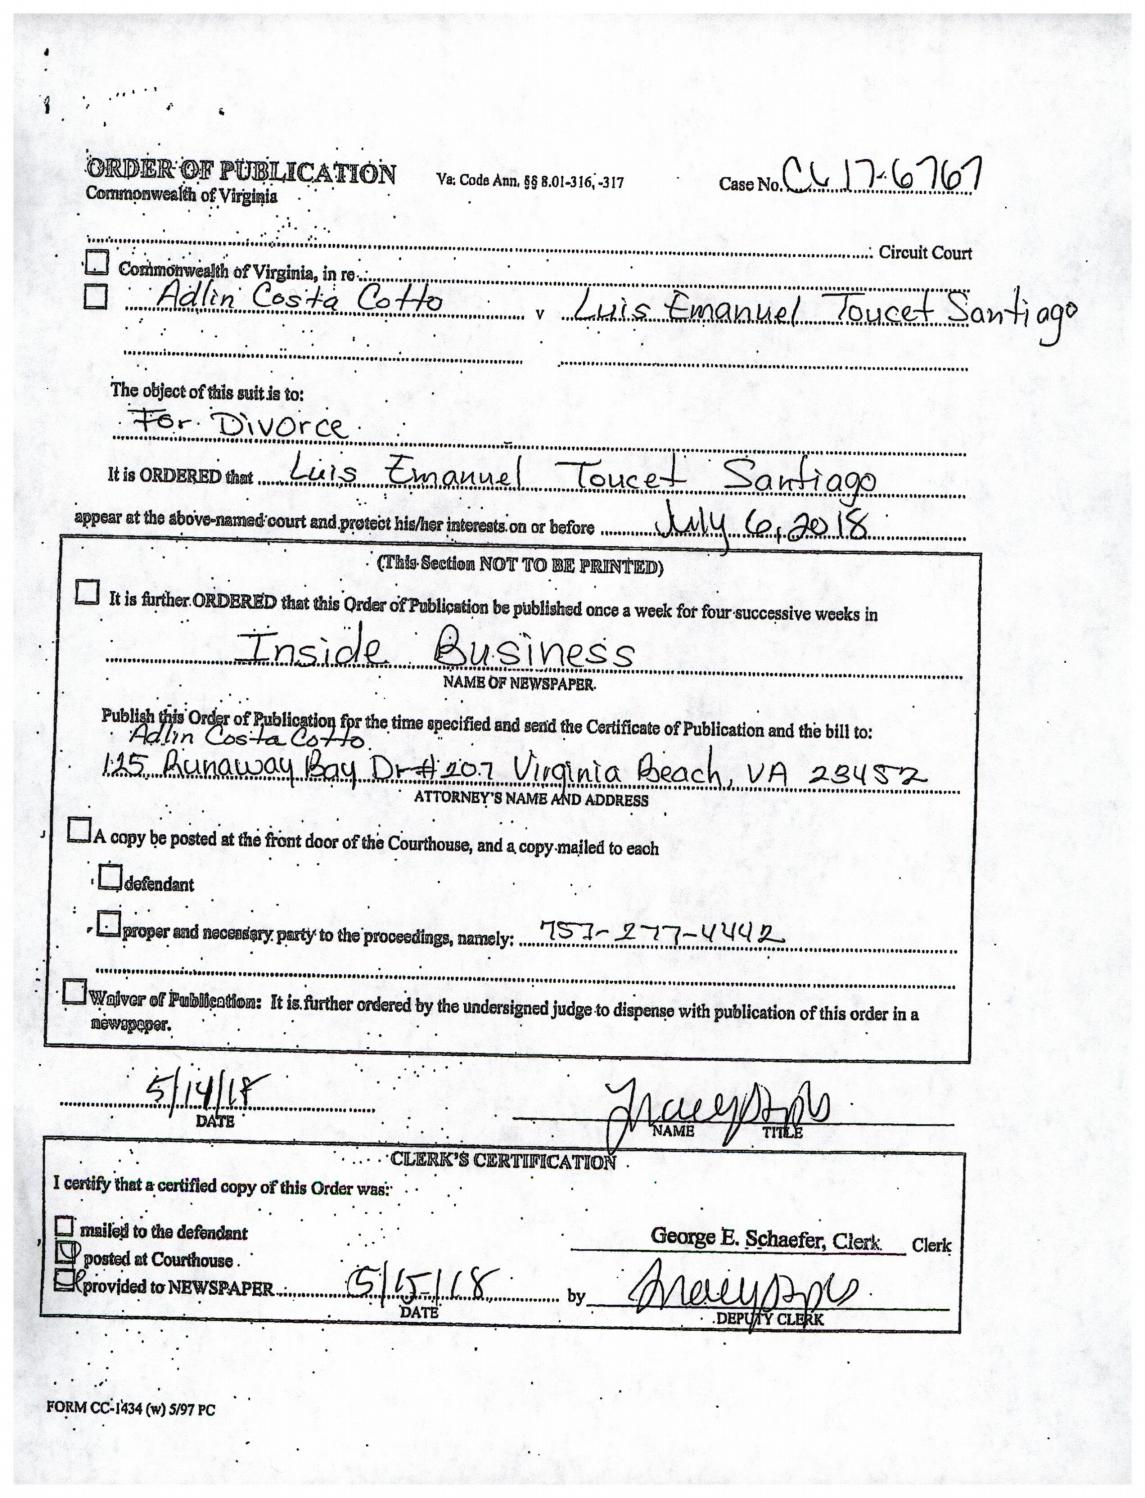 ORDER OF PUBLICATION Va. Code Ann. §§ 8.01-316, -317 Case No. CL17-6767
Commonwealth of Virginia
Circuit Court
Commonwealth of Virginia, in re
Adlin Costa Cotto v Luis Emanuel Toucet Santiago
The object of this suit is to:
For Divorce
It is ORDERED that Luis Emanuel Toucet Santiago
appear at the above-named court and protect his/her interests on or before July 6, 2018
(This Section NOT TO BE PRINTED)
It is further ORDERED that this Order of Publication be published once a week for four successive weeks in
Inside Business
NAME OF NEWSPAPER
Publish this Order of Publication for the time specified and send the Certificate of Publication and the bill to:
Adlin Costa Cotto
125 Runaway Bay Dr #207 Virginia Beach, VA 23452
ATTORNEY'S NAME AND ADDRESS
A copy be posted at the front door of the Courthouse, and a copy mailed to each
defendant
proper and necessary party to the proceedings, namely: 757-277-4442
Waiver of Publication: It is further ordered by the undersigned judge to dispense with publication of this order in a
newspaper.
5/14/18
DATE NAME TITLE
CLERK'S CERTIFICATION
I certify that a certified copy of this Order was:
mailed to the defendant
George E. Schaefer, Clerk Clerk
posted at Courthouse
provided to NEWSPAPER 5/15/18 by
DATE DEPUTY CLERK
FORM CC-1434 (w) 5/97 PC